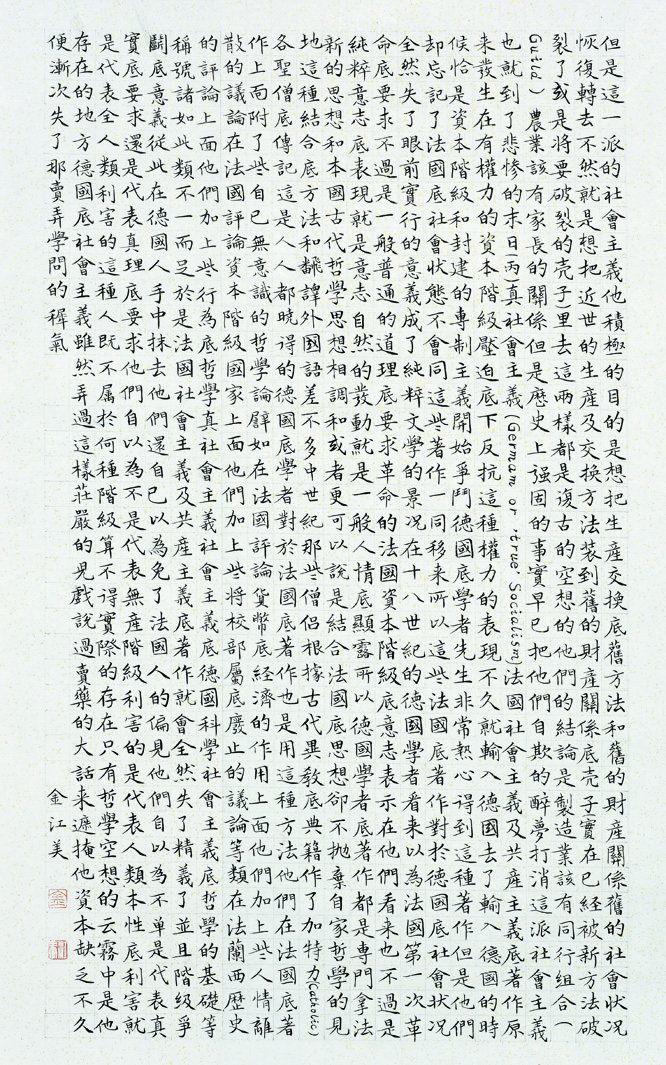 但是這一派的社會主義他積極的目的是想把生產交換底舊方法和舊的財產關係舊的社會狀況
恢復轉去不然就是想把近世的生產及交換方法裝到舊的財產關係底壳子(實在已經被新方法破
裂了或是將要破裂的壳子)里去這兩樣都是復古的空想的他們的結論是製造業該有同行組合(
Guild) 農業該有家長的關係但是歷史上强固的事實早已把他們自欺的醉夢打消這派社會主義
也就到了悲慘的末日(丙)真社會主義(Germam or "true Socialism)法國社會主義及共產主義底著作原
来發生在有權力的資本階級壓迫底下反抗這種權力的表現不久就輸入德國去了輸入德國的時
候恰是資本階級和封建的專制主義開始爭鬥德國底學者先生非常熱心得到這種著作但是他們
却忘記了法國底社會狀態不會同這些著作一同移来所以這些法國底著作對於德國底社會狀況
全然失了眼前實行的意義成了純粹文學的景况在十八世紀的德國學者看来以為法國第一次革
命底要求不過是一般普通的道理底要求革命的法國資本階級底意志表示在他們看来也不過是
純粹意志底表現就是意志自然的發動就是一般人情底顯露所以德國學者底著作都是專門拿法
新的思想和本國古代哲學思想相調和或者更可以說是結合法國底思想卻不抛棄自家哲學的見
地這種結合底方法和飜譯外國語差不多中世紀那些僧侶根據古代異教底典籍作了加特力(Catholic)
各聖僧底傳記這是人人都曉得的德國底學者對於法國底著作也是用這種方法他們在法國底著
作上面附了些自己無意識的哲學論辟如在法國評論貨幣底經濟的作用上面他們加上些人情離
散的議論在法國評論資本階級國家上面他們加上些將校部屬底廢止的議論等類在法蘭西歷史
的評論上面他們加上些行為底哲學真社會主義社會主義底德國科學社會主義底哲學的基礎等
稱號諸如此類不一而足於是法國社會主義及共產主義底著作就會全然失了精義了並且階級爭
鬭底意義從此在德國人手中抹去他們還自己以為免了法國人的偏見他們自以為不單是代表真
實底要求還是代表真理底要求他們自以為不是代表無產階級利害的是代表人類本性底利害就
是代表全人類利害的這種人既不属於何種階級算不得實際的存在只有哲學空想的云霧中是他
存在的地方德國底社會主義雖然弄過這樣莊嚴的兒戲說過賣藥的大話来遮掩他資本缺乏不久
便漸次失了那賣弄學問的穉氣
金江美